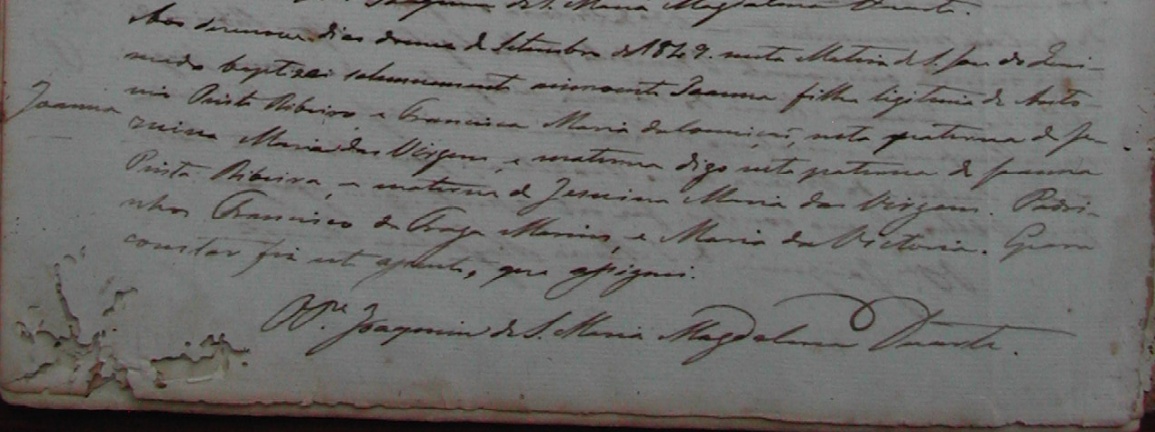 Joaquim de S. Maria Magdalena Duarte.
Aos dezenove dias do mez de Setembro de 1829. nesta Matriz de S. Jose do
baptizei solemnemente innocente Joanna filha ligitima de Anto-
Joanna
nio Pinto Ribeiro e Francisca Maria da Conceição, neta paterna de Je-
zuina Maria das Virgens, e materna digo neta paterna de Joanna
Pinta Ribeira, e materna de Jesuina Maria das Virgens. Padri-
nhos Francisco de Marins, e Maria da Victoria. E para
constar fiz este que assignei.
O P.e Joaquim de S. Maria Magdalena Duarte.